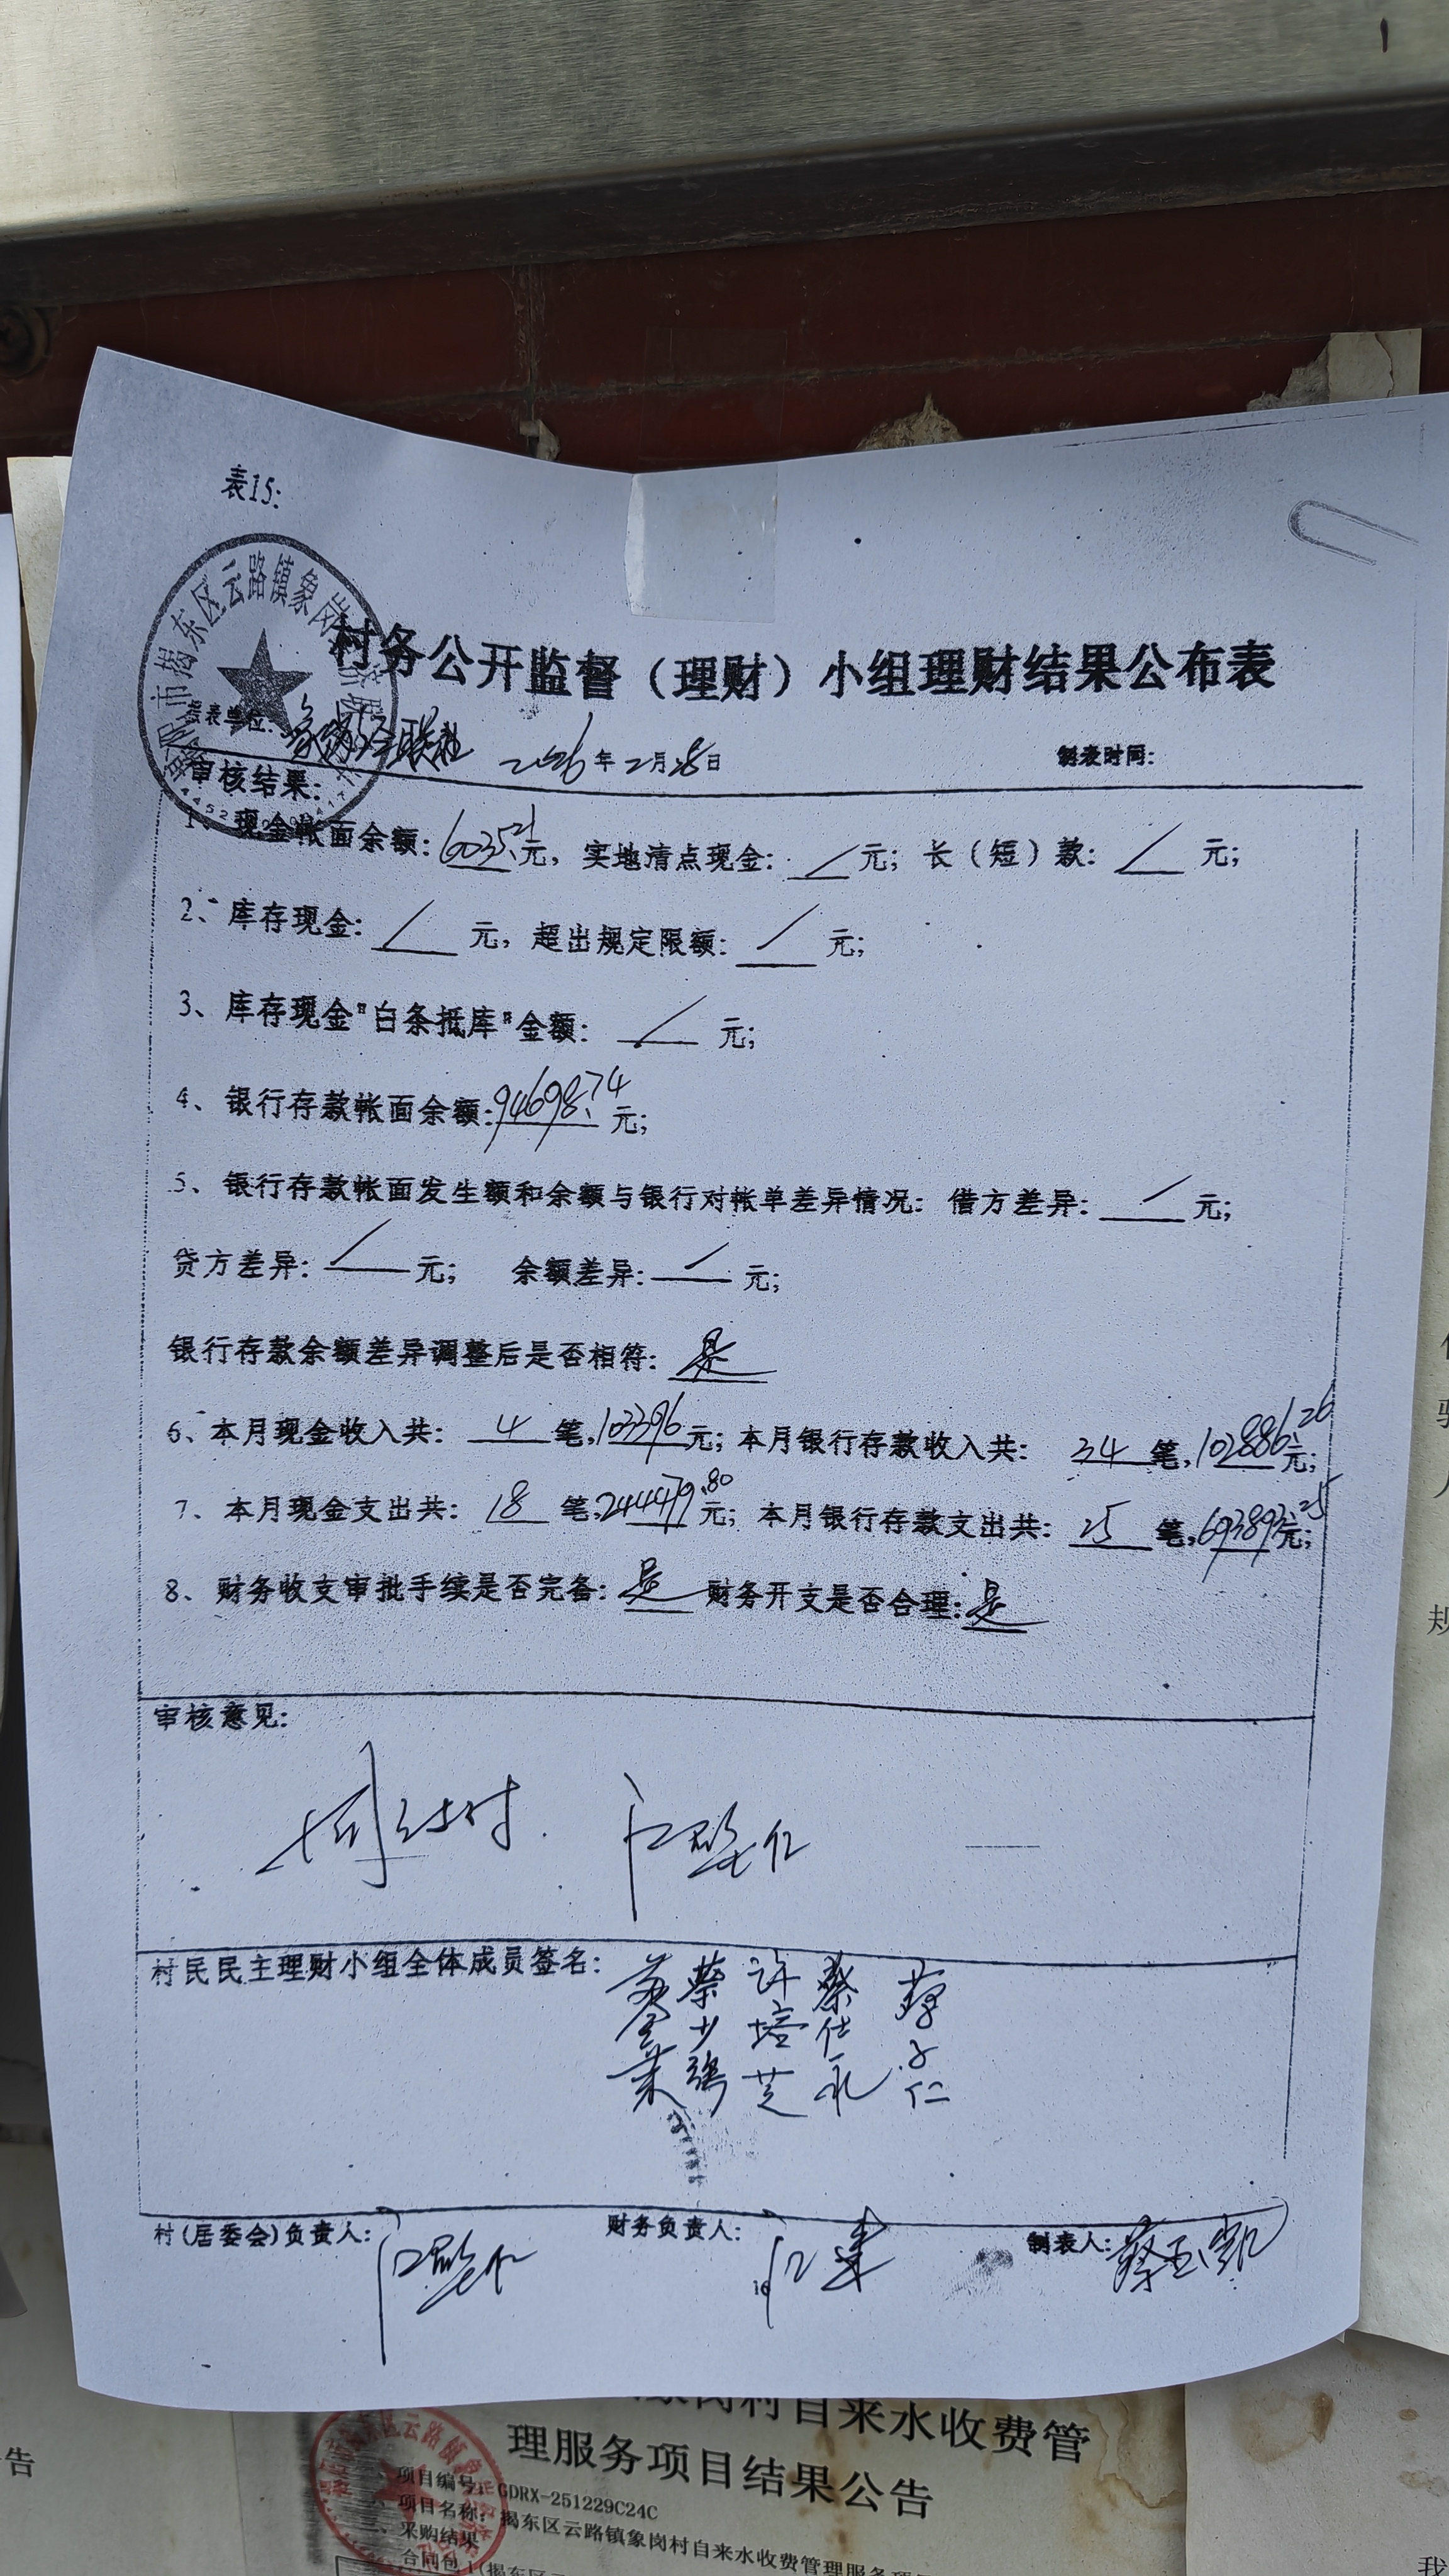 表15:
村务公开监督（理财）小组理财结果公布表
报表单位: 象岗经联社 2026年2月28日 制表时间:
审核结果:
1、现金帐面余额: 元, 实地清点现金: / 元; 长（短）款: / 元;
2、库存现金: / 元, 超出规定限额: / 元;
3、库存现金"白条抵库"金额: / 元;
4、银行存款帐面余额: 94698.74 元;
5、银行存款帐面发生额和余额与银行对帐单差异情况: 借方差异: / 元;
贷方差异: / 元; 余额差异: / 元;
银行存款余额差异调整后是否相符: 是
6、本月现金收入共: 4 笔, 103396 元; 本月银行存款收入共: 34 笔, 102886.26 元;
7、本月现金支出共: 18 笔, 244479.80 元; 本月银行存款支出共: 25 笔, 693893.25 元;
8、财务收支审批手续是否完备: 是 财务开支是否合理: 是
审核意见:
村民民主理财小组全体成员签名:
蔡少强
许培芝
蔡仕礼
村(居委会)负责人:
财务负责人:
制表人: 蔡玉凯
揭东区云路镇象岗
象岗村自来水收费管
理服务项目结果公告
项目编号: GDRX-251229C24C
项目名称: 揭东区云路镇象岗村自来水收费管理服务项
三、采购结果
合同包1(揭东区云
告
规
我